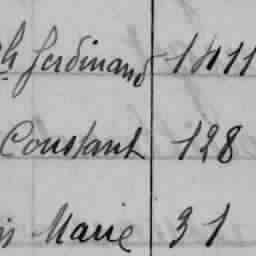 Ferdinand 1411
Constant 128
Marie 31